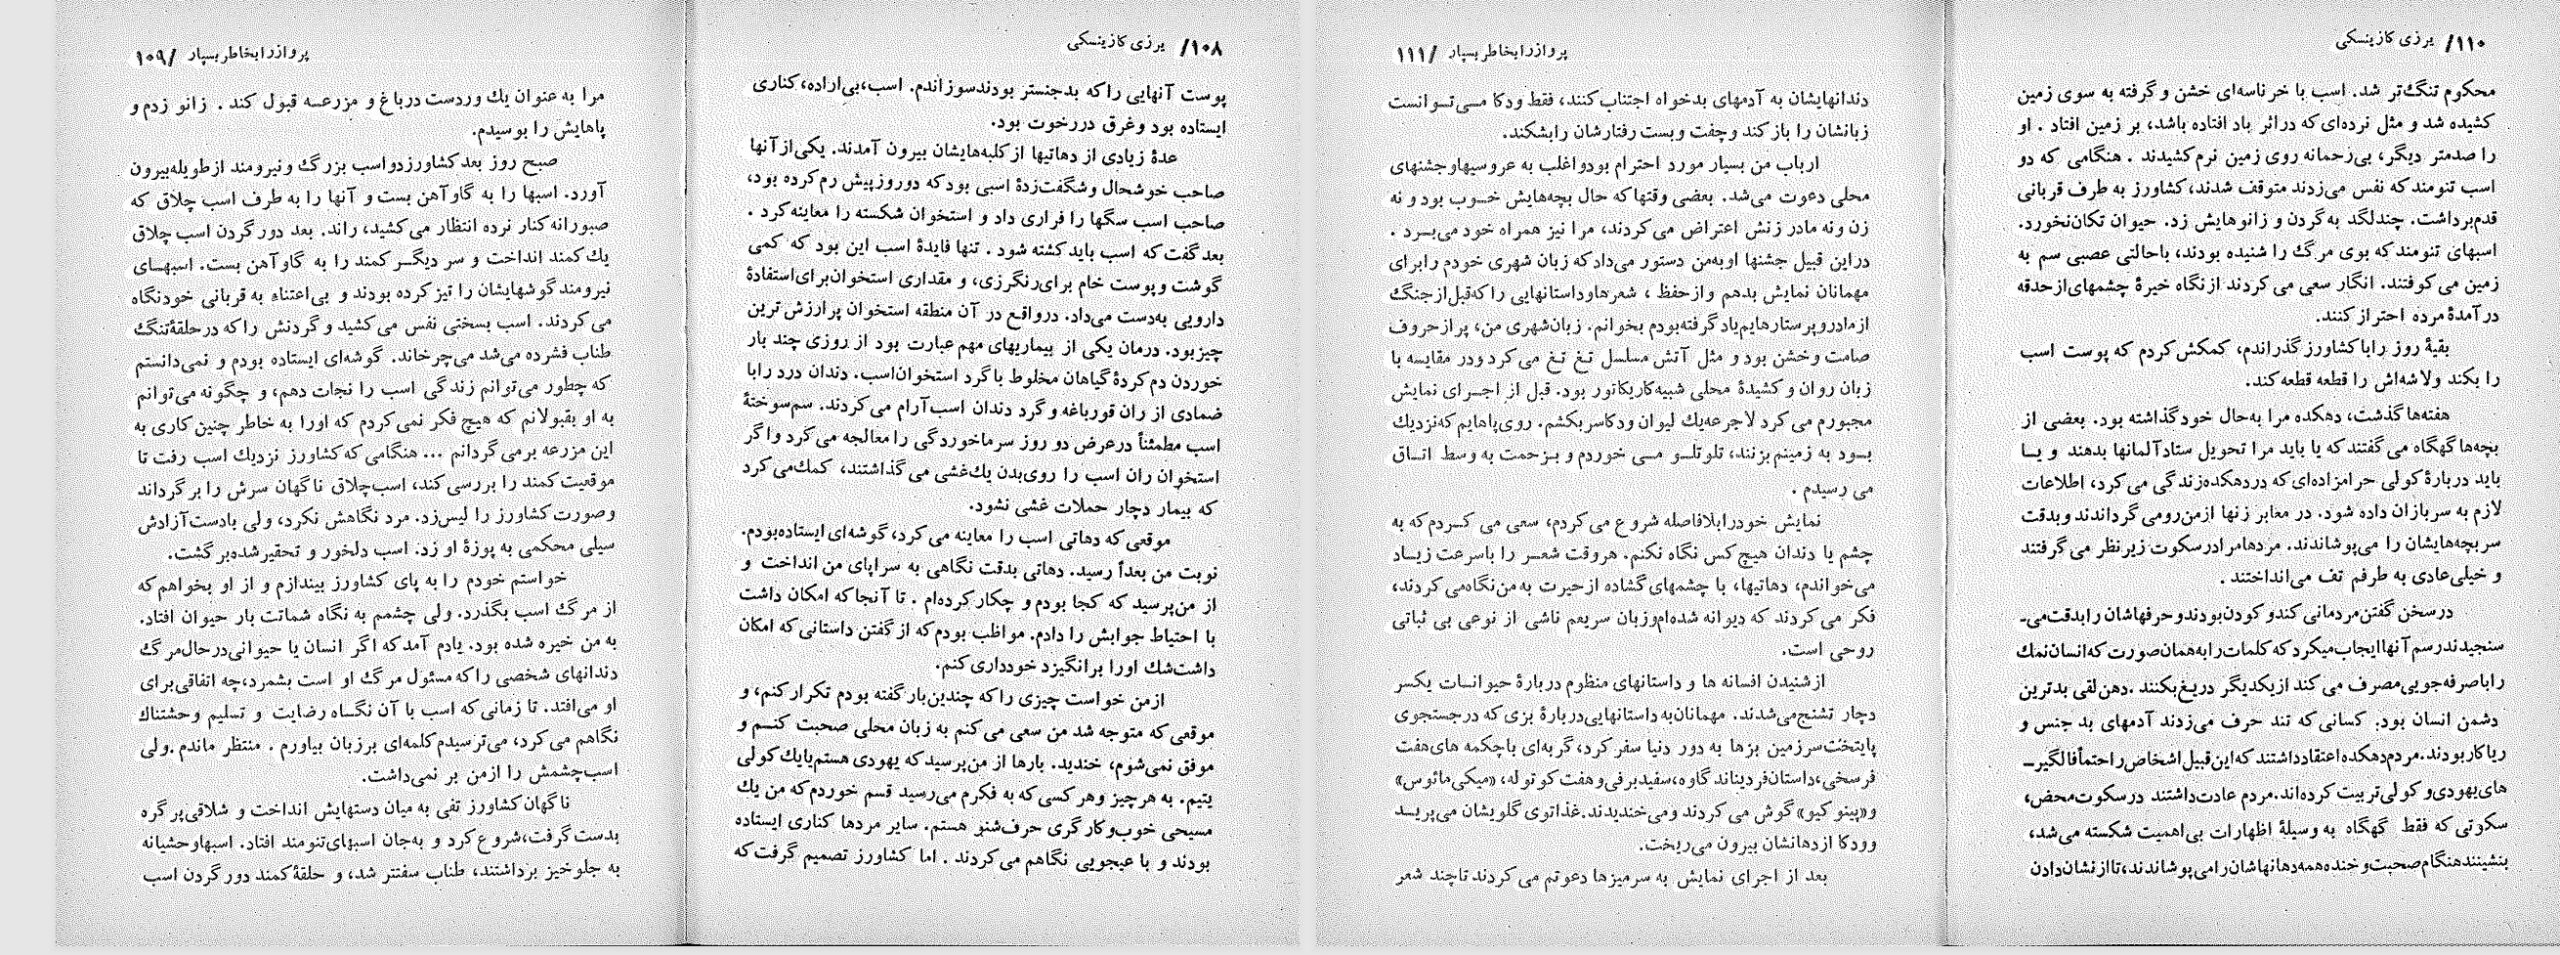 ۱۰۸/ یرزی کازینسکی
پوست آنهایی را که بد جنستر بودند سوزاندم. اسب، بی‌اراده، کناری
ایستاده بود و غرق در رخوت بود.
عدهٔ زیادی از دهاتیها از کلبه‌هایشان بیرون آمدند. یکی از آنها
صاحب خوشحال و شگفت‌زدهٔ اسبی بود که دو روز پیش رم کرده بود،
صاحب اسب سگها را فراری داد و استخوان شکسته را معاینه کرد .
بعد گفت که اسب باید کشته شود . تنها فایدهٔ اسب این بود که کمی
گوشت و پوست خام برای رنگرزی، و مقداری استخوان برای استفادهٔ
دارویی به‌دست می‌داد. در واقع در آن منطقه استخوان پر ارزش‌ترین
چیز بود. درمان یکی از بیماریهای مهم عبارت بود از روزی چند بار
خوردن دم کردهٔ گیاهان مخلوط با گرد استخوان اسب. دندان درد را با
ضمادی از ران قورباغه و گرد دندان اسب آرام می‌کردند. سم سوختهٔ
اسب مطمئناً در عرض دو روز سرماخوردگی را معالجه می‌کرد و اگر
استخوان ران اسب را روی بدن یك غشی می‌گذاشتند، کمك می‌کرد
که بیمار دچار حملات غشی نشود.
موقعی که دهاتی اسب را معاینه می‌کرد، گوشه‌ای ایستاده بودم.
نوبت من بعداً رسید. دهاتی بدقت نگاهی به سراپای من انداخت و
از من پرسید که کجا بودم و چکار کرده‌ام . تا آنجا که امکان داشت
با احتیاط جوابش را دادم. مواظب بودم که از گفتن داستانی که امکان
داشت شك اورا برانگیزد خودداری کنم.
از من خواست چیزی را که چندین بار گفته بودم تکرار کنم، و
موقعی که متوجه شد من سعی می‌کنم به زبان محلی صحبت کنم و
موفق نمی‌شوم، خندید. بارها از من پرسید که یهودی هستم یا یك کولی
یتیم. به هر چیز و هر کسی که به فکرم می‌رسید قسم خوردم که من یك
مسیحی خوب و کارگری حرف‌شنو هستم. سایر مردها کناری ایستاده
بودند و با عیبجویی نگاهم می‌کردند . اما کشاورز تصمیم گرفت که
پرواز را بخاطر بسپار /۱۰۹
مرا به عنوان یك وردست در باغ و مزرعه قبول کند . زانو زدم و
پاهایش را بوسیدم.
صبح روز بعد کشاورز دو اسب بزرگ و نیرومند از طویله بیرون
آورد. اسبها را به گاوآهن بست و آنها را به طرف اسب چلاق که
صبورانه کنار نرده انتظار می‌کشید، راند. بعد دور گردن اسب چلاق
یك کمند انداخت و سر دیگر کمند را به گاوآهن بست. اسبهای
نیرومند گوشهایشان را تیز کرده بودند و بی‌اعتناء به قربانی خود نگاه
می‌کردند. اسب بسختی نفس می‌کشید و گردنش را که در حلقهٔ تنگ
طناب فشرده می‌شد می‌چرخاند. گوشه‌ای ایستاده بودم و نمی‌دانستم
که چطور می‌توانم زندگی اسب را نجات دهم، و چگونه می‌توانم
به او بقبولانم که هیچ فکر نمی‌کردم که اورا به خاطر چنین کاری به
این مزرعه برمی‌گردانم ... هنگامی که کشاورز نزدیك اسب رفت تا
موقعیت کمند را بررسی کند، اسب چلاق ناگهان سرش را برگرداند
وصورت کشاورز را لیس زد. مرد نگاهش نکرد، ولی بادست آزادش
سیلی محکمی به پوزهٔ او زد. اسب دلخور و تحقیر شده برگشت.
خواستم خودم را به پای کشاورز بیندازم و از او بخواهم که
از مرگ اسب بگذرد. ولی چشمم به نگاه شماتت بار حیوان افتاد.
به من خیره شده بود. یادم آمد که اگر انسان یا حیوانی در حال مرگ
دندانهای شخصی را که مسئول مرگ او است بشمرد، چه اتفاقی برای
او می‌افتد. تا زمانی که اسب با آن نگاه رضایت و تسلیم وحشتناك
نگاهم می‌کرد، می‌ترسیدم کلمه‌ای بر زبان بیاورم . منتظر ماندم .ولی
اسب چشمش را از من بر نمی‌داشت.
ناگهان کشاورز تفی به میان دستهایش انداخت و شلاقی پر گره
بدست گرفت، شروع کرد و به جان اسبهای تنومند افتاد. اسبها وحشیانه
به جلو خیز برداشتند، طناب سفتتر شد، و حلقهٔ کمند دور گردن اسب
۱۱۰/ یرزی کازینسکی
محکوم تنگ‌تر شد. اسب با خرناسه‌ای خشن و گرفته به سوی زمین
کشیده شد و مثل نرده‌ای که در اثر باد افتاده باشد، بر زمین افتاد . او
را صدمتر دیگر، بی‌رحمانه روی زمین نرم کشیدند . هنگامی که دو
اسب تنومند که نفس می‌زدند متوقف شدند، کشاورز به طرف قربانی
قدم برداشت. چند لگد به گردن و زانوهایش زد. حیوان تکان نخورد.
اسبهای تنومند که بوی مرگ را شنیده بودند، با حالتی عصبی سم به
زمین می‌کوفتند. انگار سعی می‌کردند از نگاه خیرهٔ چشمهای از حدقه
در آمدهٔ مرده احتراز کنند.
بقیهٔ روز را با کشاورز گذراندم، کمکش کردم که پوست اسب
را بکند ولاشه‌اش را قطعه قطعه کند.
هفته‌ها گذشت، دهکده مرا به حال خود گذاشته بود. بعضی از
بچه‌ها گهگاه می‌گفتند که یا باید مرا تحویل ستاد آلمانها بدهند و یا
باید دربارهٔ کولی حرامزاده‌ای که در دهکده زندگی می‌کرد، اطلاعات
لازم به سربازان داده شود. در معابر زنها از من رو می‌گرداندند و بدقت
سر بچه‌هایشان را می‌پوشاندند. مردها مرا در سکوت زیر نظر می‌گرفتند
و خیلی عادی به طرفم تف می‌انداختند .
در سخن گفتن مردمانی کند و کودن بودند و حرفهاشان را بدقت می‌ـ
سنجیدند رسم آنها ایجاب میکرد که کلمات را به همان صورت که انسان نمك
را باصرفه‌جویی مصرف می‌کند از یکدیگر دریغ بکنند .دهن لقی بدترین
دشمن انسان بود. کسانی که تند حرف می‌زدند آدمهای بد جنس و
ریاکار بودند. مردم دهکده اعتقاد داشتند که این قبیل اشخاص را حتماً فالگیرـ
های یهودی و کولی تربیت کرده‌اند. مردم عادت داشتند در سکوت محض،
سکوتی که فقط گهگاه به وسیلهٔ اظهارات بی‌اهمیت شکسته می‌شد،
بنشینند هنگام صحبت و خنده همه دهانهاشان را می‌پوشاندند، تا از نشان دادن
پرواز را بخاطر بسپار /۱۱۱
دندانهایشان به آدمهای بدخواه اجتناب کنند، فقط ودکا می‌توانست
زبانشان را باز کند و چفت و بست رفتارشان را بشکند.
ارباب من بسیار مورد احترام بود و اغلب به عروسیها و جشنهای
محلی دعوت می‌شد. بعضی وقتها که حال بچه‌هایش خوب بود و نه
زن و نه مادر زنش اعتراض می‌کردند، مرا نیز همراه خود می‌برد .
در این قبیل جشنها او به من دستور می‌داد که زبان شهری خودم را برای
مهمانان نمایش بدهم و از حفظ ، شعرها و داستانهایی را که قبل از جنگ
از مادر و پرستارهایم یاد گرفته بودم بخوانم. زبان شهری من، پر از حروف
صامت و خشن بود و مثل آتش مسلسل تغ تغ می‌کرد و در مقایسه با
زبان روان و کشیدهٔ محلی شبیه کاریکاتور بود. قبل از اجرای نمایش
مجبورم می‌کرد لاجرعه یك لیوان ودکا سر بکشم. روی پاهایم که نزدیك
بود به زمینم بزنند، تلوتلو می خوردم و بزحمت به وسط اتاق
می رسیدم .
نمایش خود را بلافاصله شروع می‌کردم، سعی می کردم که به
چشم یا دندان هیچ کس نگاه نکنم. هر وقت شعر را باسرعت زیاد
می‌خواندم، دهاتیها، با چشمهای گشاده از حیرت به من نگاه می‌کردند،
فکر می‌کردند که دیوانه شده‌ام و زبان سریعم ناشی از نوعی بی ثباتی
روحی است.
از شنیدن افسانه ها و داستانهای منظوم دربارهٔ حیوانات یکسر
دچار تشنج می‌شدند. مهمانان به داستانهایی دربارهٔ بزی که در جستجوی
پایتخت سرزمین بزها به دور دنیا سفر کرد، گربه‌ای با چکمه های هفت
فرسخی، داستان فردیناند گاوه، سفید برفی و هفت کوتوله، «میکی مائوس»
و «پینو کیو» گوش می‌کردند و می‌خندیدند. غذا توی گلویشان می‌پرید
و ودکا از دهانشان بیرون می‌ریخت.
بعد از اجرای نمایش به سر میزها دعوتم می‌کردند تا چند شعر